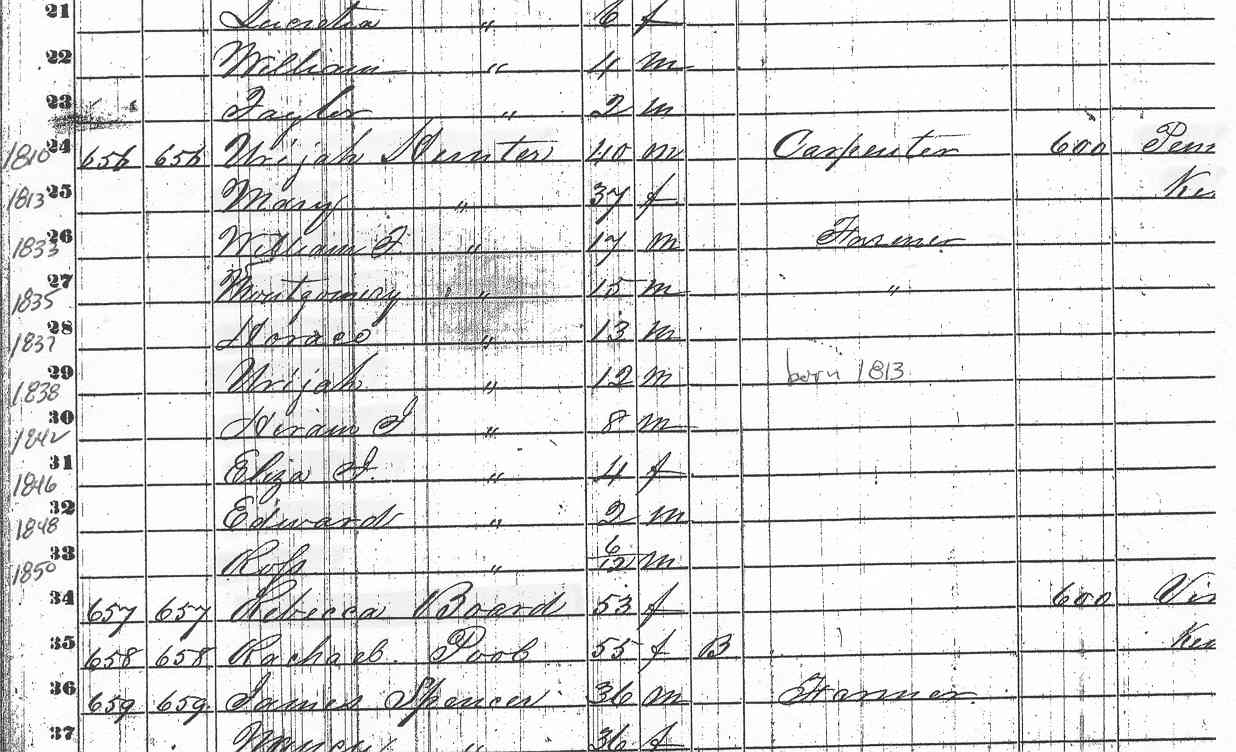 21 Lucretia " 6 f
22 William " 4 m
23 Taylor " 2 m
1810 24 656 656 Urijah Hunter 40 m Carpenter 600 Penn
1813 25 Mary " 37 f Ke
1833 26 William F. " 17 m Farmer
1835 27 Montgomery " 15 m "
1837 28 Horace " 13 m
1838 29 Urijah " 12 m born 1813
1842 30 Hiram J " 8 m
1846 31 Eliza J. " 4 f
1848 32 Edward " 2 m
1850 33 " 6/12 m
34 657 657 Rebecca Board 53 f 600 Vir
35 658 658 Rachael. 55 f B Ke
36 659 659 James Spencer 36 m Farmer
37 Nancy " 36 f